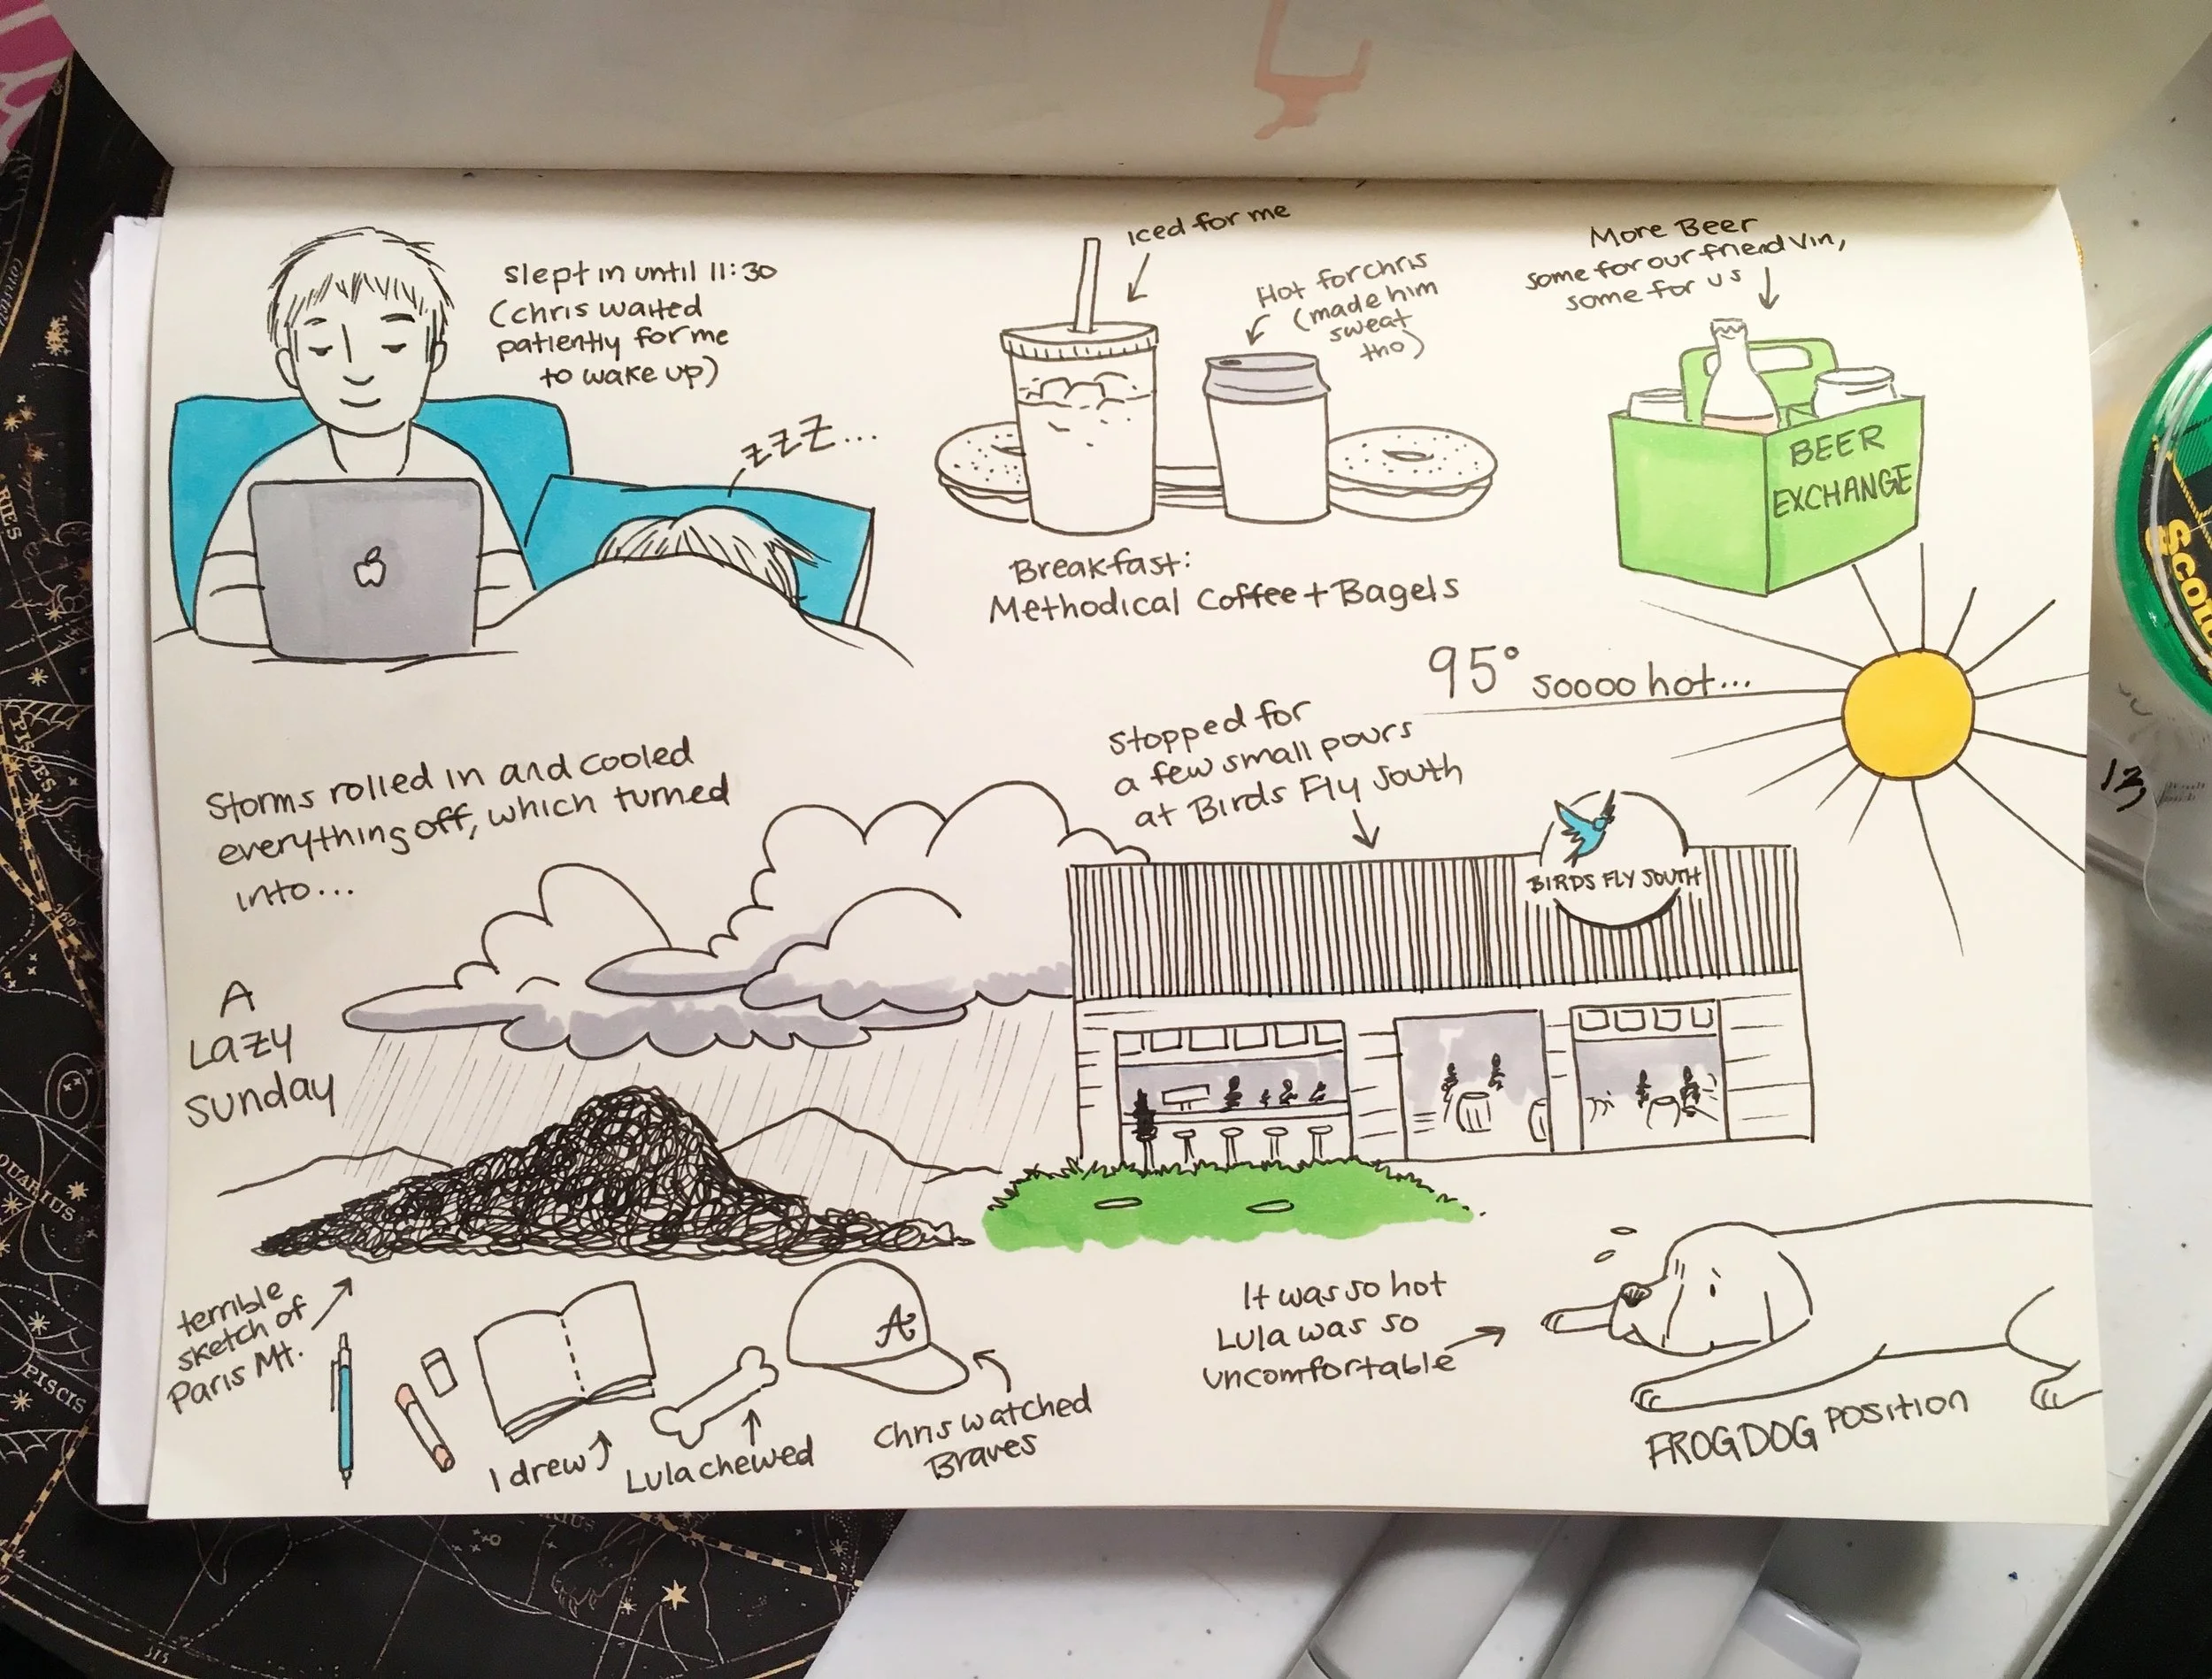 slept in until 11:30
(chris waited
patiently for me
to wake up)
zzz...
iced for me
Hot for chris
(made him
sweat
tho)
Breakfast:
Methodical Coffee + Bagels
More Beer
some for our friend Vin,
some for us
BEER
EXCHANGE
95° soooo hot...
stopped for
a few small pours
at Birds Fly South
BIRDS FLY SOUTH
Storms rolled in and cooled
everything off, which turned
into...
A
Lazy
Sunday
terrible
sketch of
Paris Mt.
I drew
Lula chewed
A
Chris watched
Braves
It was so hot
Lula was so
uncomfortable
FROG DOG POSITION
PISCES
QUARIUS
PISCIS
RIES
Scot
13,
315
360